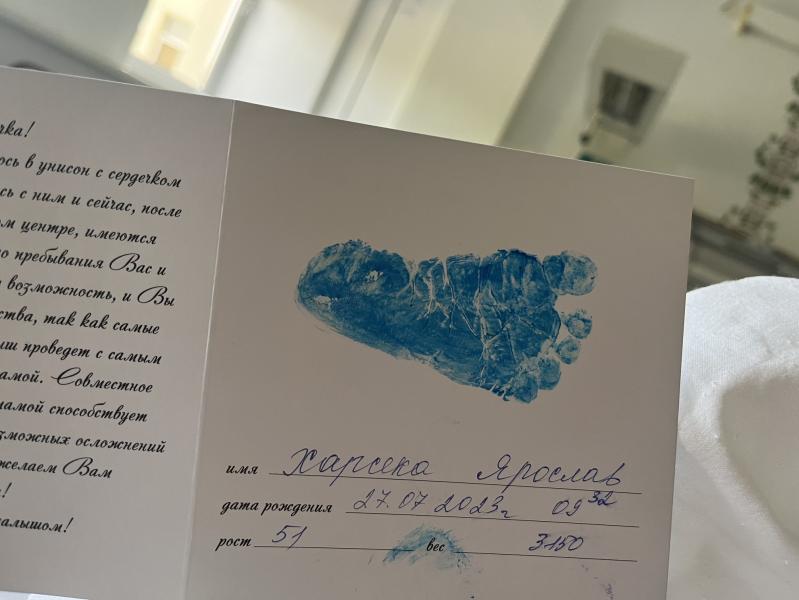 чка!
ось в унисон с сердечком
сь с ним и сейчас, после
м центре, имеются
о пребывания Вас и
возможность, и Вы
ства, так как самые
ыш проведет с самым
амой. Совместное
мамой способствует
зможных осложнений
желаем Вам
!
алышом!
имя Харсека Ярослав
дата рождения 27.07 2023г 09 32
рост 51 вес 3150